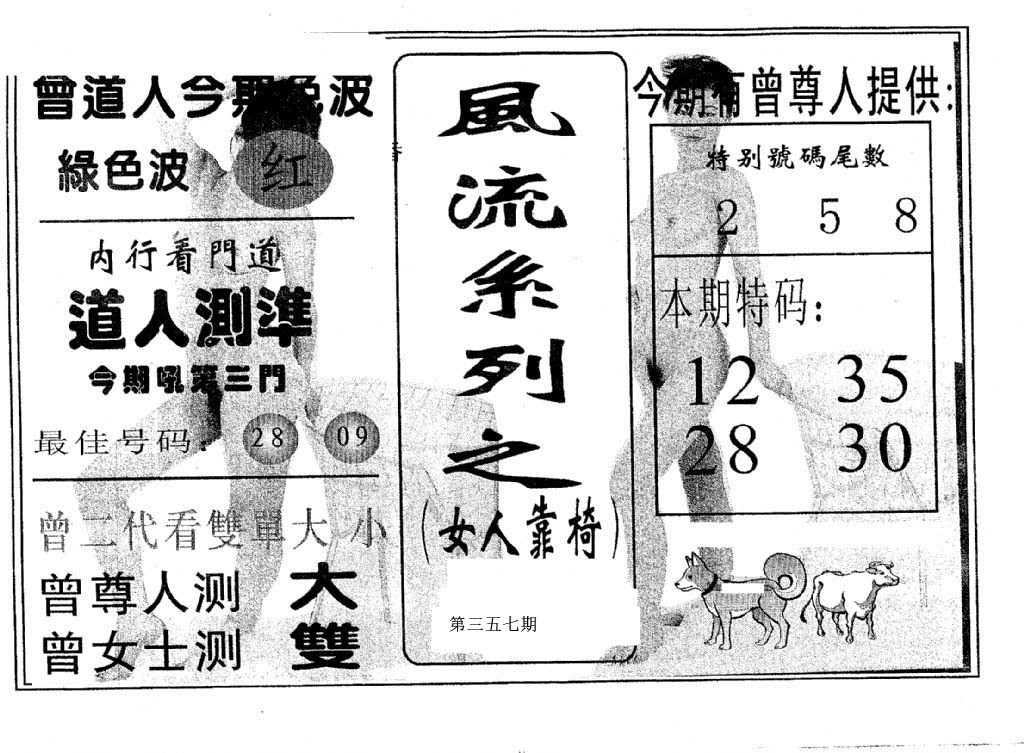 曾道人今期色波
綠色波 红
内行看門道
道人測準
今期吼第三門
最佳号码: 28 09
曾二代看雙單大小
曾尊人测 大
曾女士测 雙
風流系列之
(女人靠椅)
第三五七期
今期有曾尊人提供:
特别號碼尾數
2 5 8
本期特码:
12 35
28 30